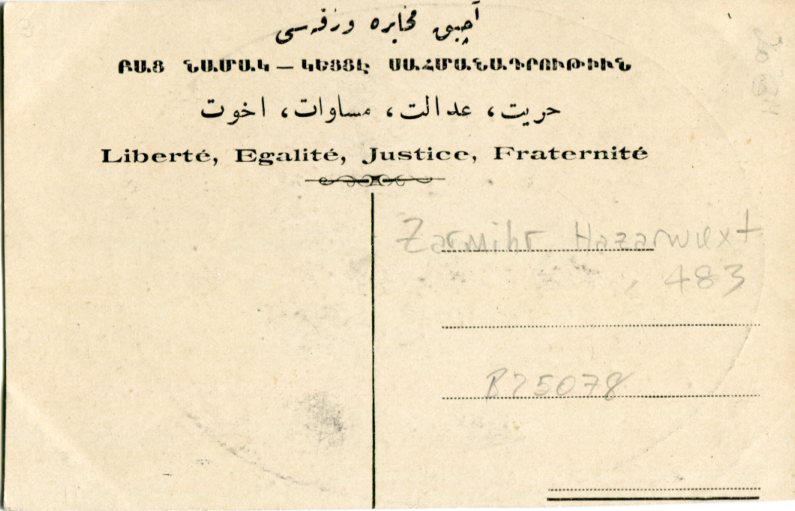 آچیق مخابره ورقه سی
ԲԱՑ ՆԱՄԱԿ — ԿԵՑՑԷ ՍԱՀՄԱՆԱԴՐՈՒԹԻՒՆ
حریت، عدالت، مساوات، اخوت
Liberté, Egalité, Justice, Fraternité
Zarmihr Hazarwuxt
, 483
B25078